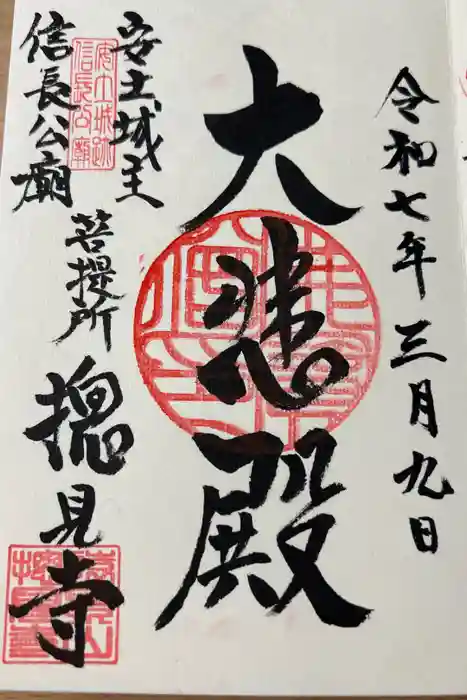 令和七年三月九日
大悲殿
安土城主
信長公廟
菩提所
摠見寺
安土城跡
信長公廟